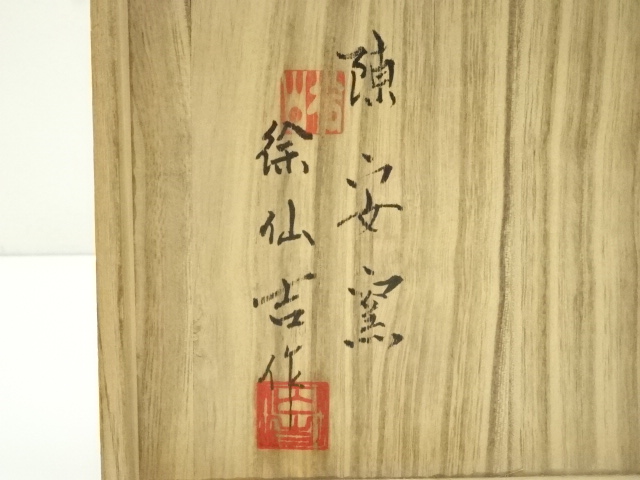 陳安窯
徐仙吉作